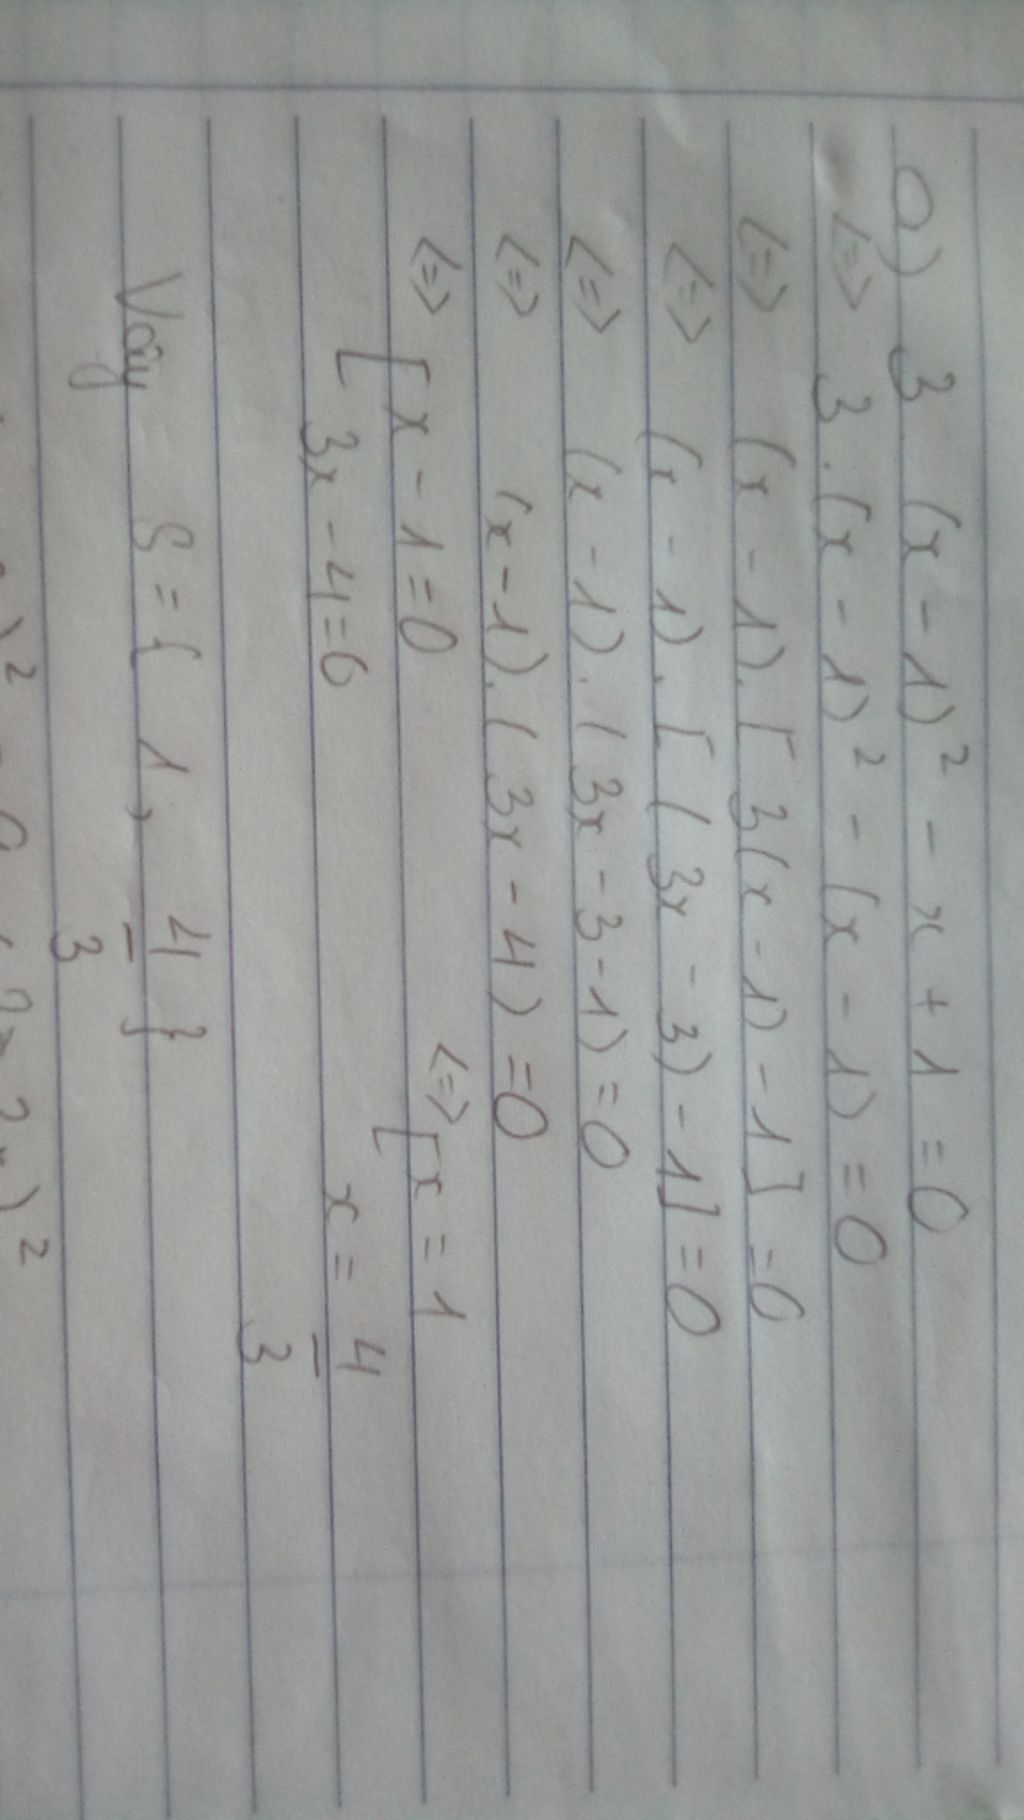 a) 3 (x - 1)² - x + 1 = 0
<=> 3 . (x - 1)² - (x - 1) = 0
<=> (x - 1). [ 3(x - 1) - 1] = 0
<=> (x - 1). [ ( 3x - 3) - 1] = 0
<=> (x - 1). ( 3x - 3 - 1) = 0
<=> (x - 1). ( 3x - 4) = 0
<=> [ x - 1 = 0 <=> [ x = 1
3x - 4 = 0 x = 4/3
Vậy S = { 1, 4/3 }